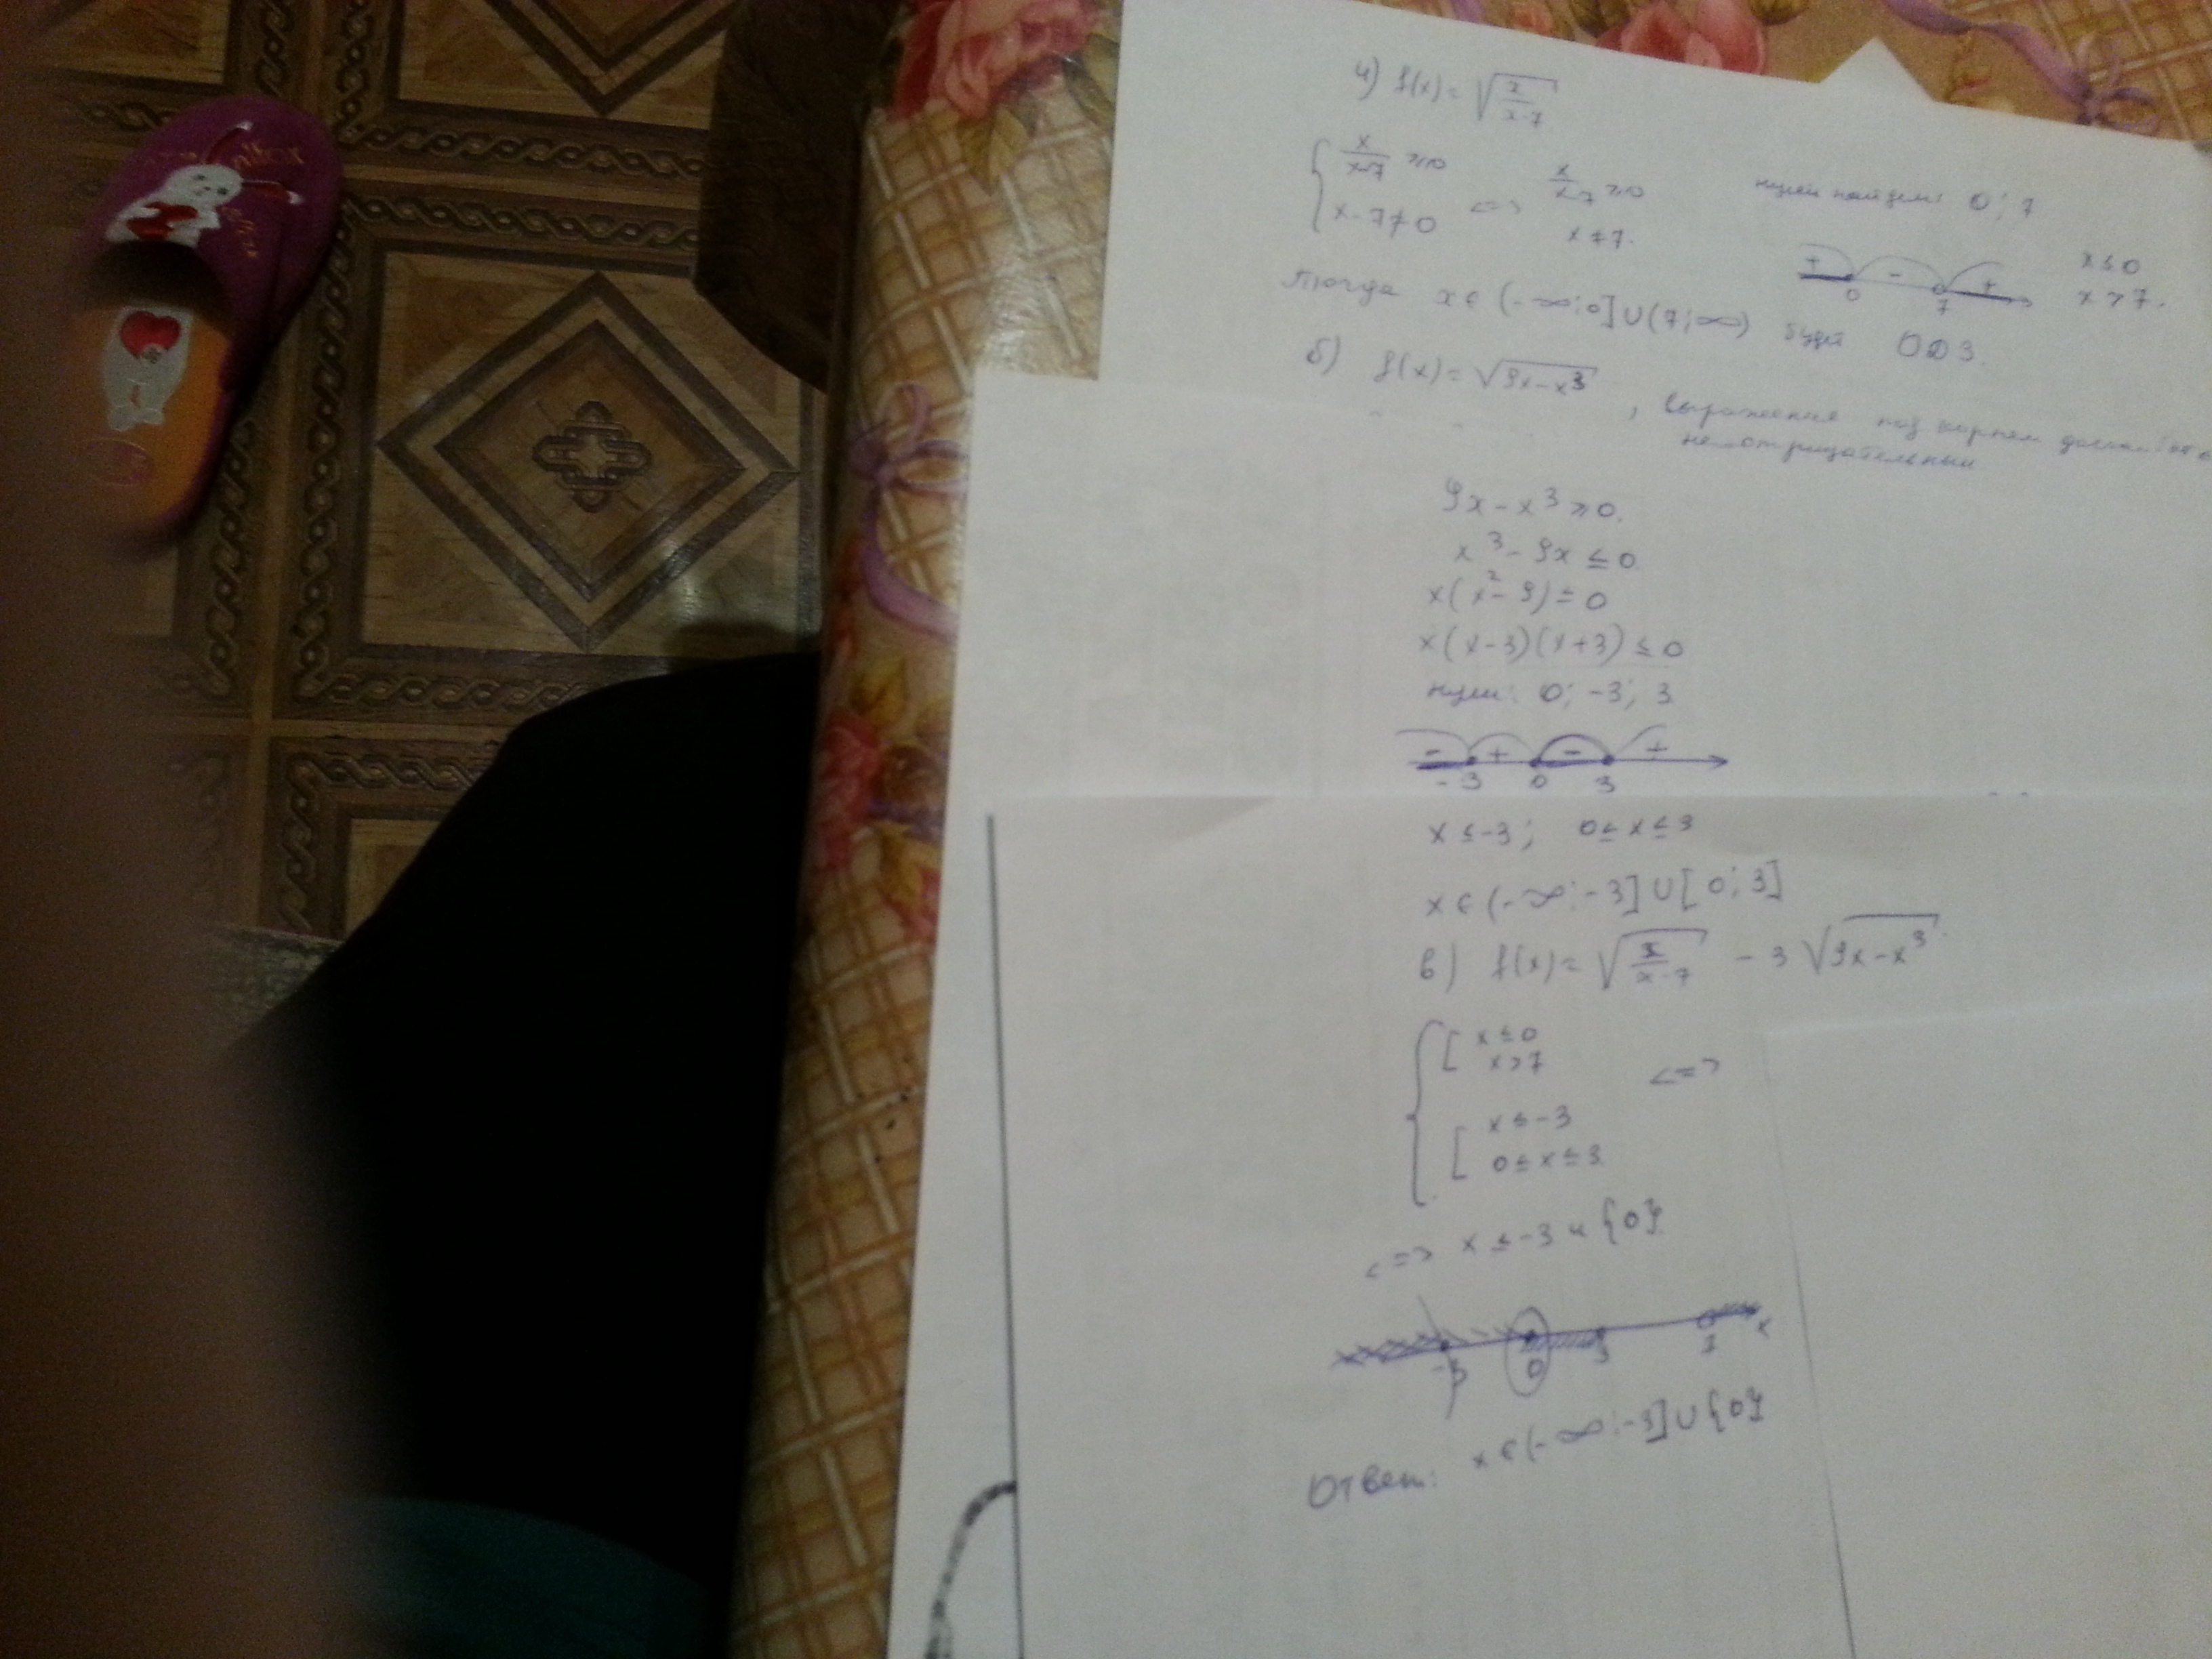 и) f(x) = √(x/(x-7))
{ x/(x-7) ≥ 0 <=> x/(x-7) ≥ 0
x-7≠0 x≠7.
нулей найдем: 0; 7
+ - +
0 7
x≤0
x>7.
тогда x ∈ (-∞;0]∪(7;∞) будет ОДЗ.
б) f(x) = √(9x-x³) , выражение под корнем
неотрицательным
9x-x³≥0.
x³-9x≤0
x(x²-9)≤0
x(x-3)(x+3)≤0
нули: 0; -3; 3
- + - +
-3 0 3
x≤-3; 0≤x≤3
x∈(-∞;-3]∪[0;3]
в) f(x) = √(x/(x-7)) - 3√(9x-x³)
{ [ x≤0
x>7 <=>
[ x≤-3
0≤x≤3
<=> x≤-3 и {0}
-3 0 3 7 x
Ответ: x∈(-∞;-3]∪{0}